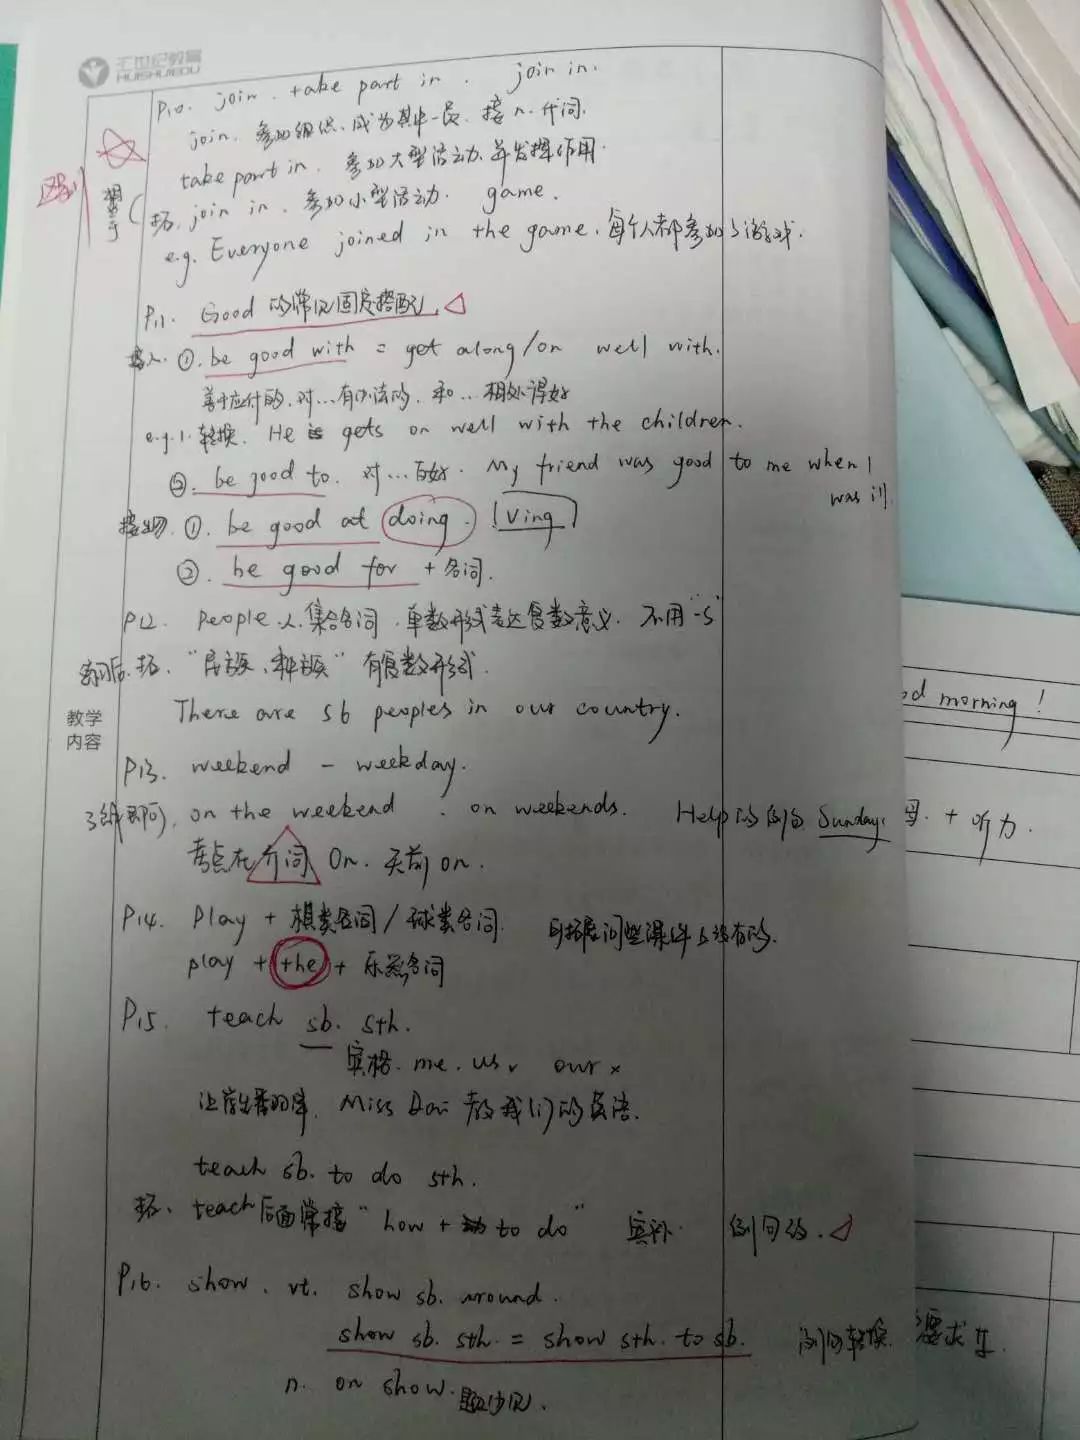 汇世纪教育
HUISHIJIEDU
P10. join. take part in. join in.
join. 参加组织、成为其中一员. 接n. 介词.
区别
相当于
take part in. 参加大型活动、并发挥作用.
拓. join in. 参加小型活动. game.
e.g. Everyone joined in the game. 每个人都参加了游戏.
P11. Good 的常见固定搭配
接人. ①. be good with = get along/on well with.
善于应付的. 对...有办法的. 和...相处得好
e.g.1. 转换. He gets on well with the children.
②. be good to. 对...友好. My friend was good to me when I
was ill.
接事物. ①. be good at doing. Ving
②. be good for + 名词.
P12. people. 人. 集合名词. 单数形式表达复数意义. 不用"-s"
拓. "民族、种族" 有复数形式.
There are 56 peoples in our country.
教学
内容
P13. weekend - weekday.
了解即可. on the weekend. on weekends. Help 的例句 Sunday.
考点在介词 On. 天前 on.
P14. Play + 棋类名词/球类名词. 可拓展问些课件上没有的.
play + the + 乐器名词
P15. teach sb. sth.
宾格. me. us. our ×
Miss Dai 教我们的英语.
teach sb. to do sth.
拓. teach后面常接 "how + to do" 宾补. 例句
P16. show. vt. show sb. around.
show sb. sth. = show sth. to sb. 例句转换.
n. on show. 题少见.
od morning!
母. + 听力.
要求